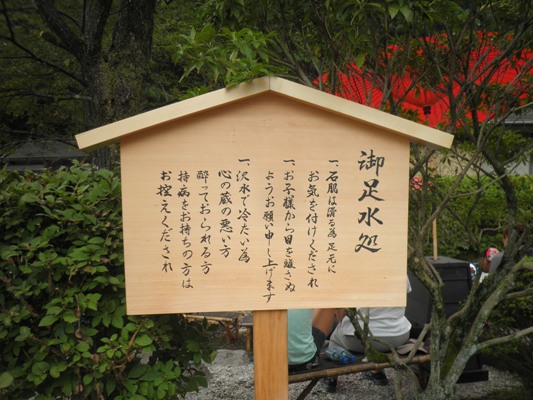 御足水処
一、石肌は滑る為足元に
お気を付けくだされ
一、お子様から目を離さぬ
ようお願い申し上げます
一、沢水で冷たい為
心の蔵の悪い方
酔っておられる方
持病をお持ちの方は
お控えくだされ